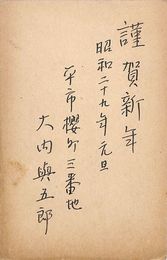 謹賀新年
昭和二十九年元旦
平市櫻ヶ三番地
大内與五郎